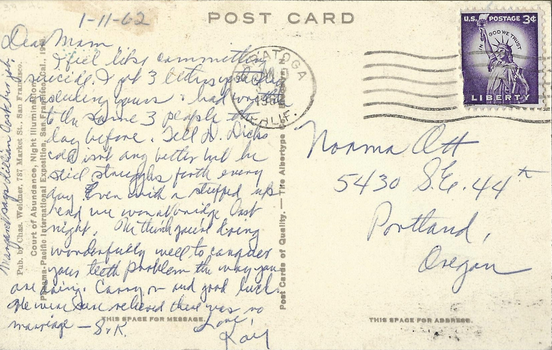 1-11-62
POST CARD
Dear Mom
I feel like committing
suicide. I got 3 letters yesterday
including yours & had written
to the same 3 people the
day before. Tell N. Dick's
cold isn't any better but he
still struggles forth every
day. Even with a stuffed up
head we won at bridge last
night. We think you're doing
wonderfully well to conquer
your teeth problem the way you
are doing. Carry on and good luck.
We were sure relieved there was no
marriage — S & R.
Love,
Kay
Margaret says Lillian
Pub. by Chas. Weidner, 787 Market St., San Francisco.
Court of Abundance, Night Illumination.
Panama-Pacific International Exposition, San Francisco, Cal.,
THIS SPACE FOR MESSAGE.
Post Cards of Quality. — The Albertype
SARATOGA
CALIF.
U.S. POSTAGE 3¢
IN GOD WE TRUST
LIBERTY
Norma Ott
5430 S.E. 44th
Portland,
Oregon
THIS SPACE FOR ADDRESS.